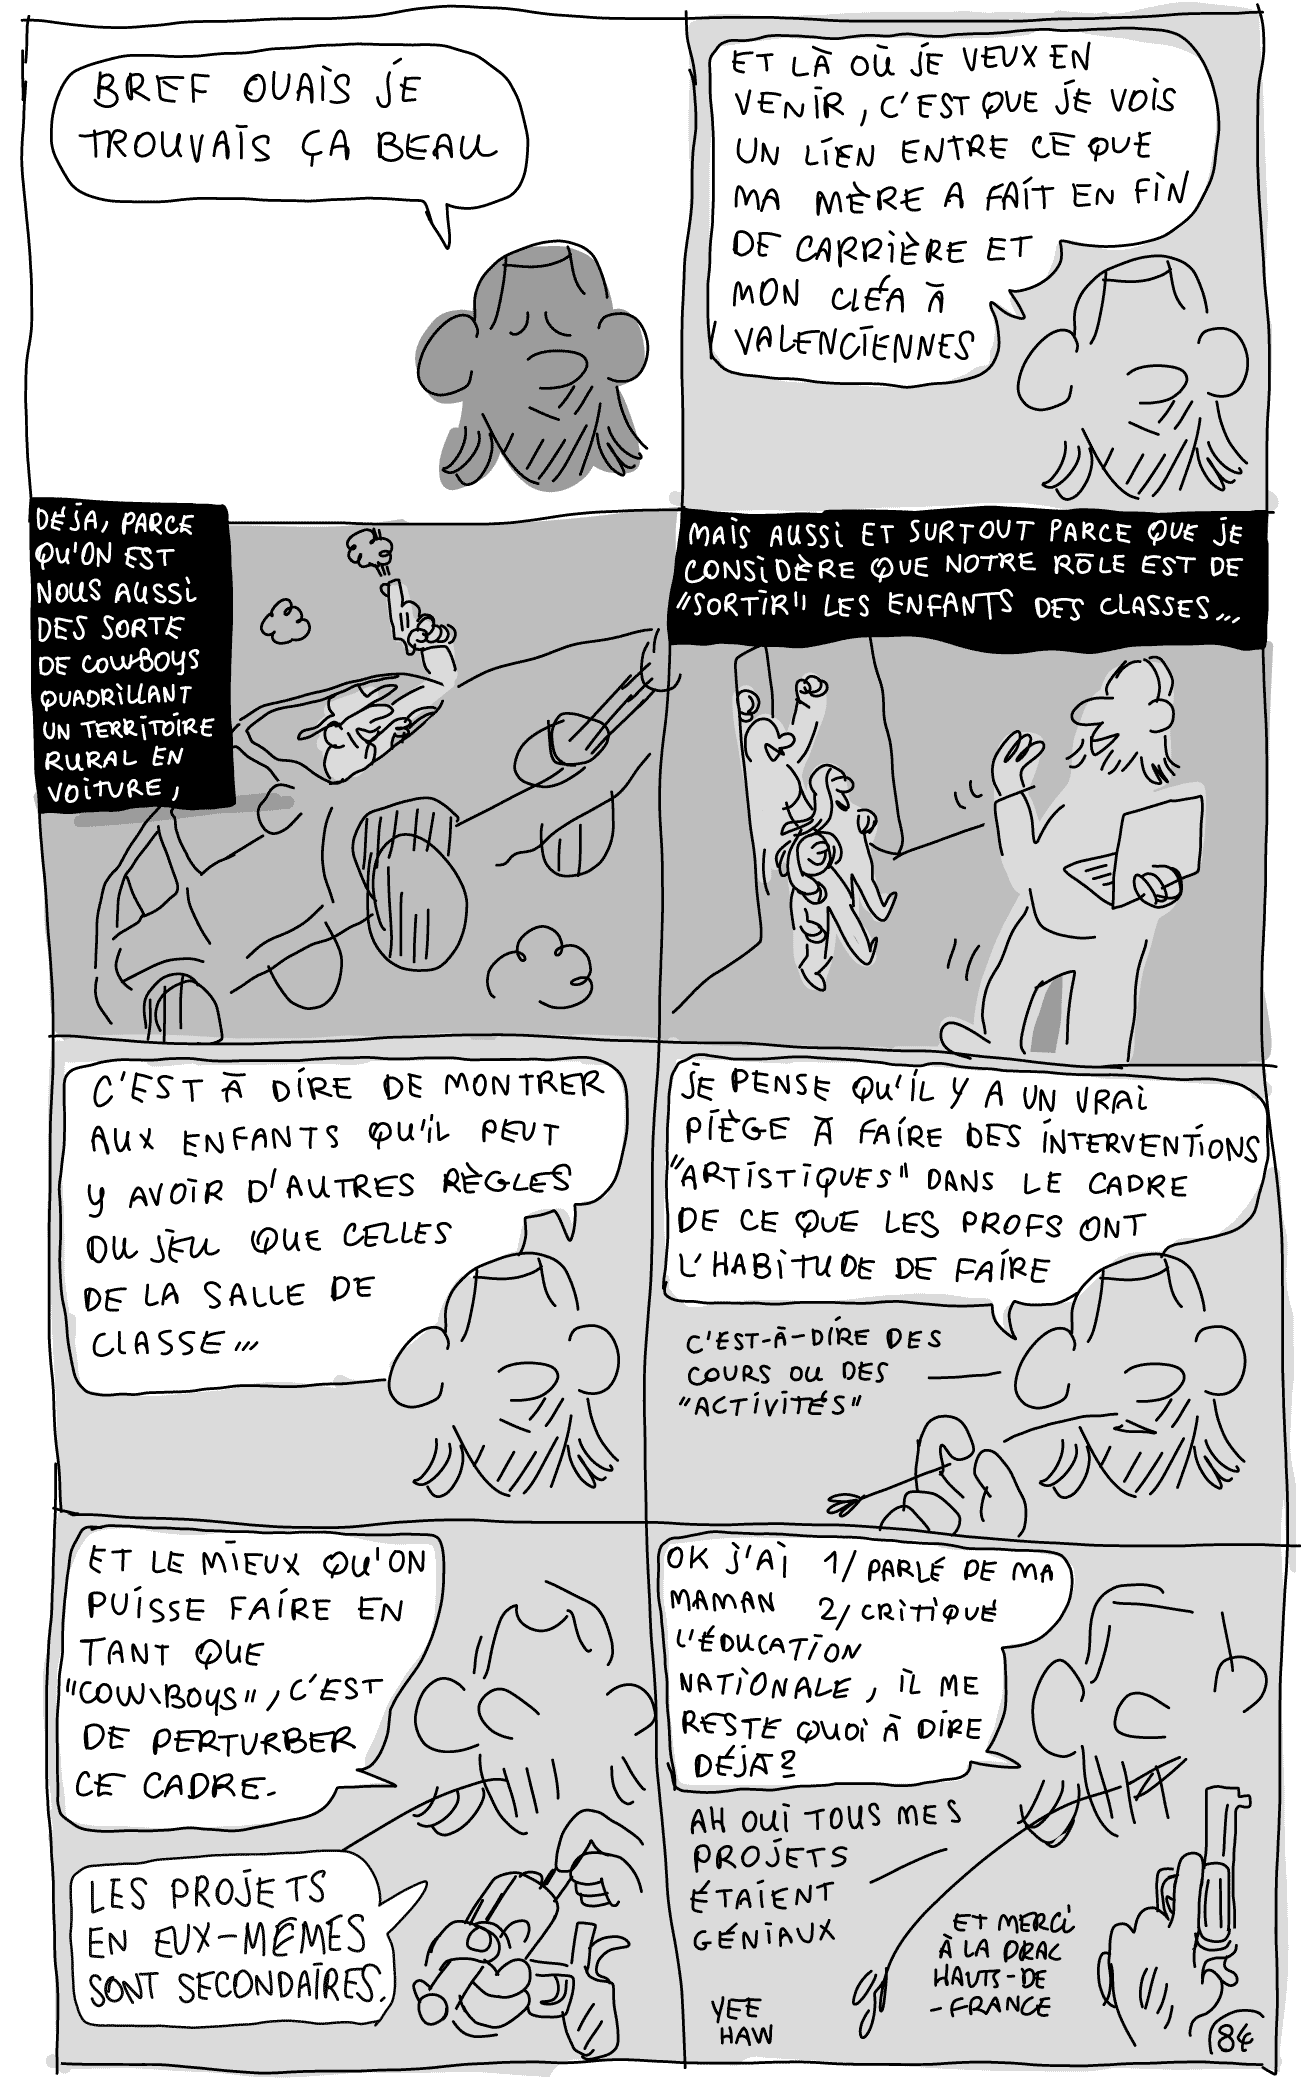 BREF OUAIS JE
TROUVAIS ÇA BEAU
ET LÀ OÙ JE VEUX EN
VENIR, C'EST QUE JE VOIS
UN LIEN ENTRE CE QUE
MA MÈRE A FAIT EN FIN
DE CARRIÈRE ET
MON CLÉA À
VALENCIENNES
DÉJA, PARCE
QU'ON EST
NOUS AUSSI
DES SORTE
DE COWBOYS
QUADRILLANT
UN TERRITOIRE
RURAL EN
VOITURE,
MAIS AUSSI ET SURTOUT PARCE QUE JE
CONSIDÈRE QUE NOTRE RÔLE EST DE
"SORTIR" LES ENFANTS DES CLASSES...
C'EST À DIRE DE MONTRER
AUX ENFANTS QU'IL PEUT
Y AVOIR D'AUTRES RÈGLES
DU JEU QUE CELLES
DE LA SALLE DE
CLASSE...
JE PENSE QU'IL Y A UN VRAI
PIÈGE À FAIRE DES INTERVENTIONS
"ARTISTIQUES" DANS LE CADRE
DE CE QUE LES PROFS ONT
L'HABITUDE DE FAIRE
C'EST-À-DIRE DES
COURS OU DES
"ACTIVITÉS"
ET LE MIEUX QU'ON
PUISSE FAIRE EN
TANT QUE
"COW-BOYS", C'EST
DE PERTURBER
CE CADRE.
LES PROJETS
EN EUX-MÊMES
SONT SECONDAIRES.
OK J'AI 1/ PARLÉ DE MA
MAMAN 2/ CRITIQUÉ
L'ÉDUCATION
NATIONALE, IL ME
RESTE QUOI À DIRE
DÉJA?
AH OUI TOUS MES
PROJETS
ÉTAIENT
GÉNIAUX
ET MERCI
À LA DRAC
HAUTS-DE
-FRANCE
YEE
HAW
84